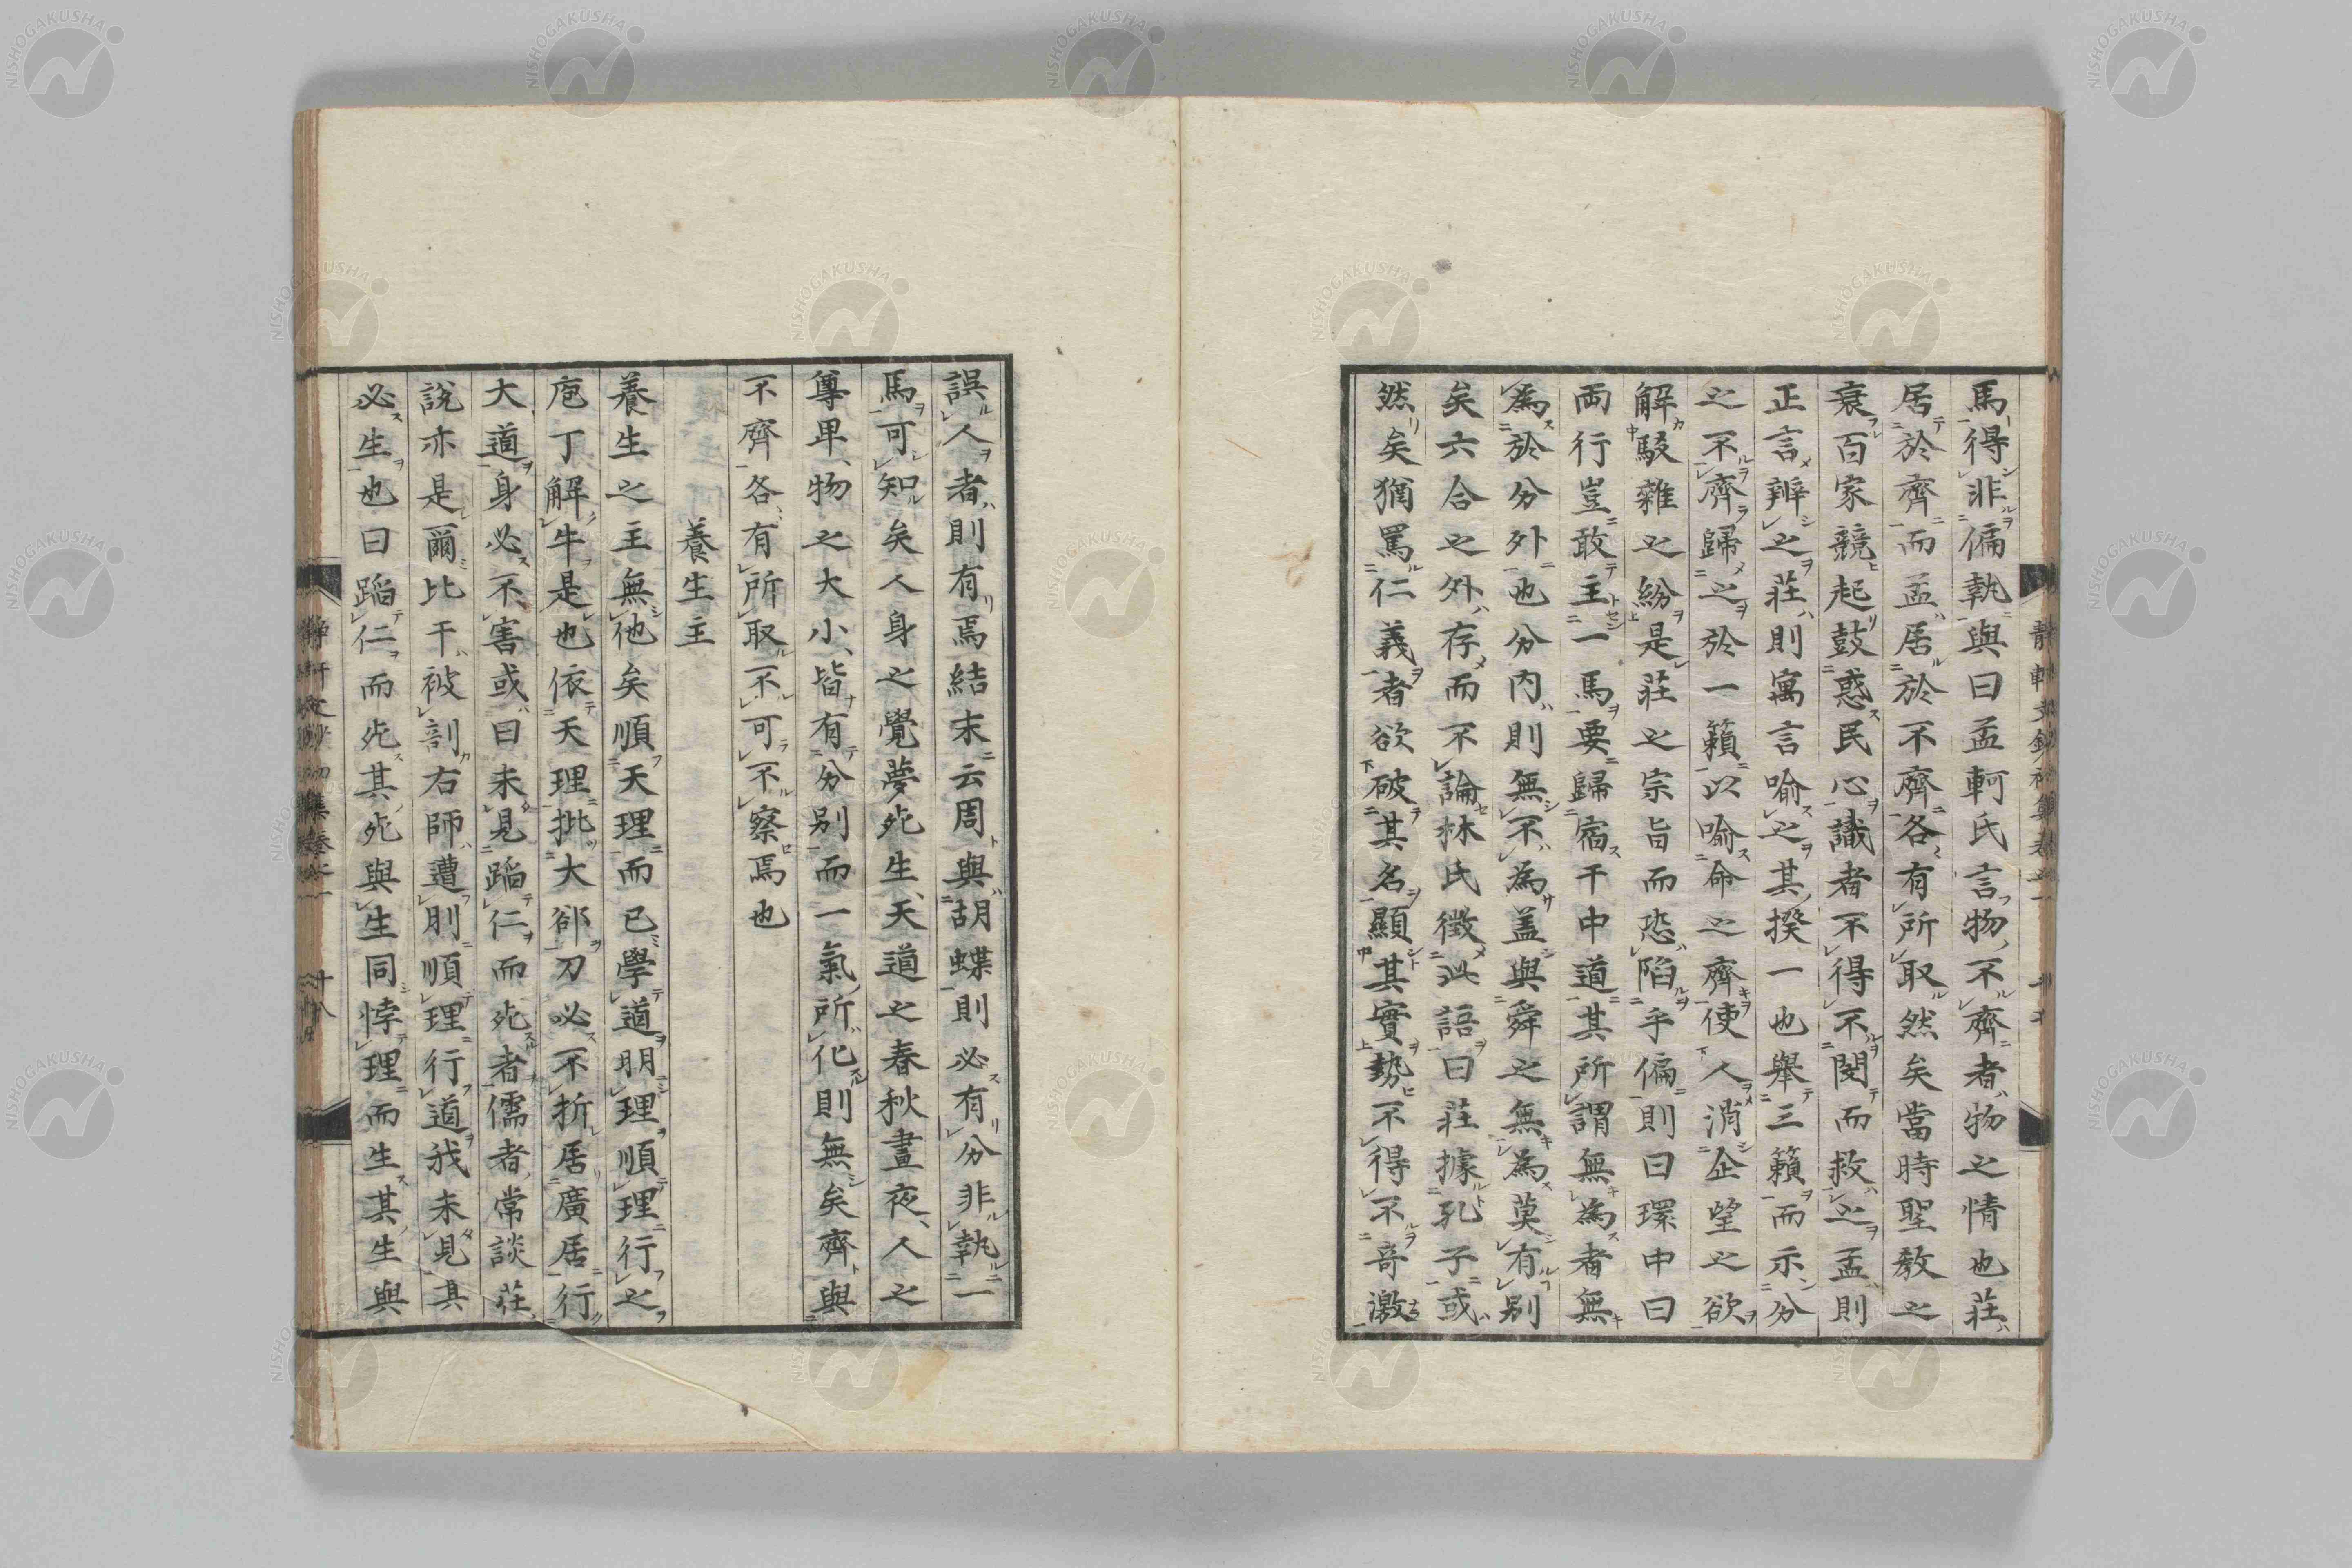 馬得非偏執與曰孟軻氏言物不齊者物之情也莊
居於齊而孟居於不齊各有所取然矣當時聖教之
衰百家競起鼓惑民心識者不得不閔而救之孟則
正言辨之莊則寓言喻之其揆一也舉三籟而示分
之不齊歸之於一籟以喻命之齊使人消企望之欲
解駁雜之紛是莊之宗旨而恐陷乎偏則曰環中曰
両行豈敢主一馬要歸宿于中道其所謂無為者無
為於分外也分內則無不為盖與舜之無為莫有別
矣六合之外存而不論林氏徵此語曰莊據孔子或
然矣猶罵仁義者欲破其名顯其實勢不得不奇激
誤人者則有焉結末云周與胡蝶則必有分非執一
馬可知矣人身之覺夢死生天道之春秋晝夜人之
尊卑物之大小皆有分別而一氣所化則無矣齊與
不齊各有所取不可不察焉也
養生主
養生之主無他矣順天理而已學道明理順理行之
庖丁解牛是也依天理批大郤刀必不折居廣居行
大道身必不害或曰未見蹈仁而死者儒者常談莊
說亦是爾比干被剖右師遭刖順理行道我未見其
必生也曰蹈仁而死其死與生同悖理而生其生與
靜軒文鈔初集卷之一
十八